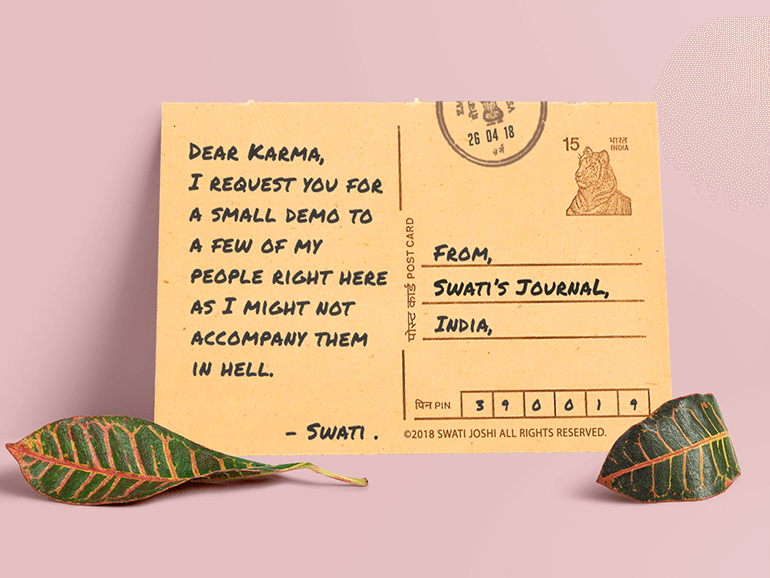 Dear Karma,
I request you for
a small demo to
a few of my
people right here
as I might not
accompany them
in hell.
- Swati .
26 04 18
15 भारत
INDIA
पोस्ट कार्ड POST CARD
From,
Swati's Journal,
India,
पिन PIN 3 9 0 0 1 9
©2018 SWATI JOSHI ALL RIGHTS RESERVED.